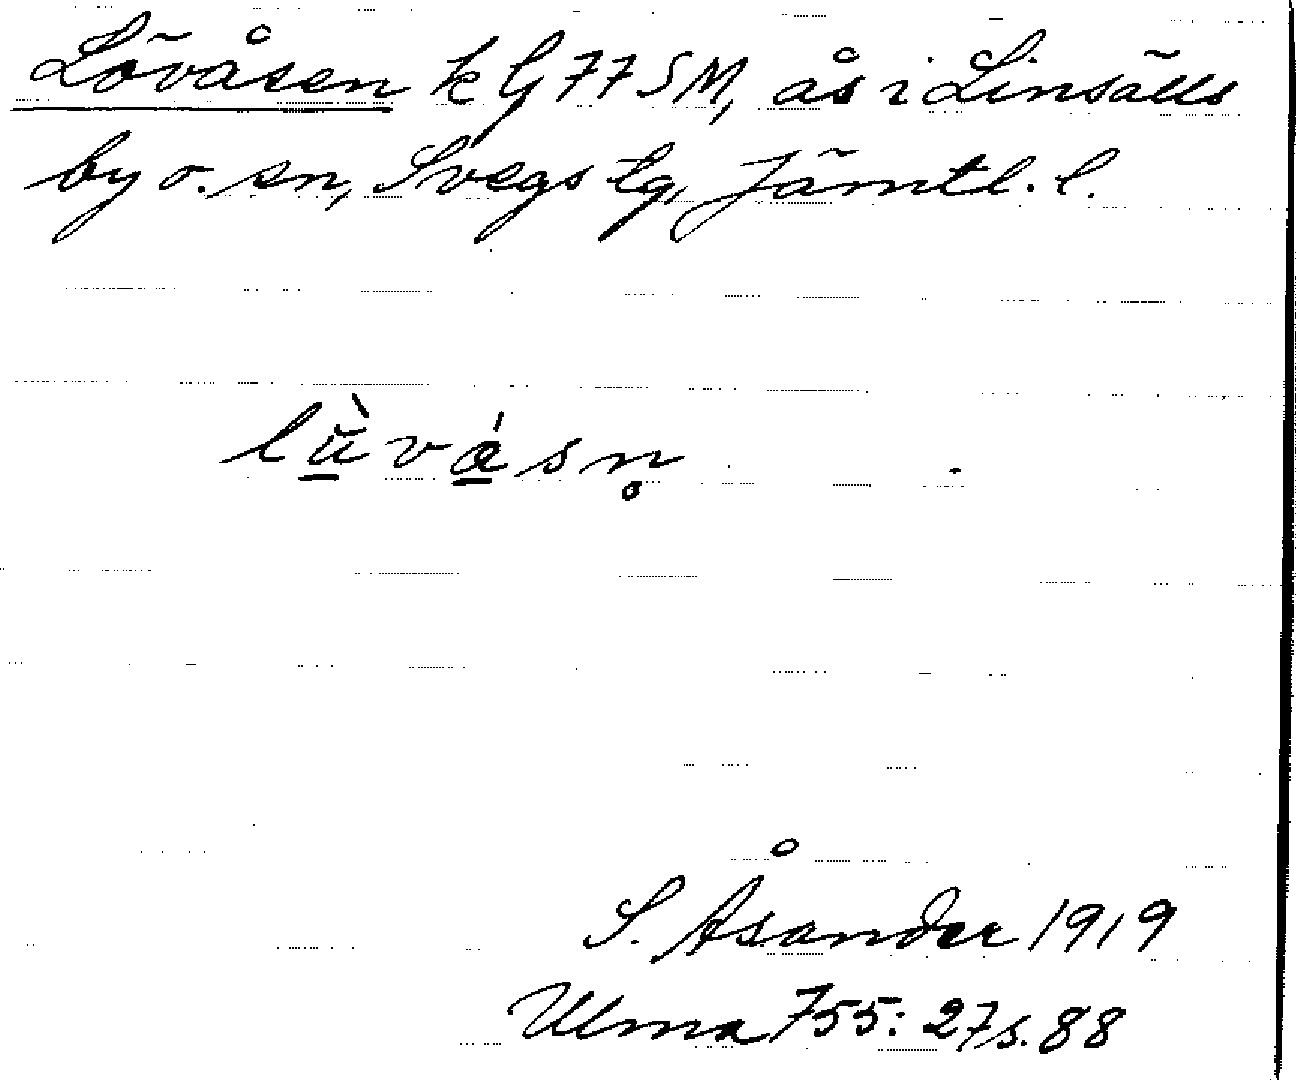 Lövåsen k G 77 SM, ås i Linsälls
by o. sn, Svegs tg, Jämtl. l.
lù̱vá̱sn̥
S. Åsander 1919
Ulma 755: 27 s. 88